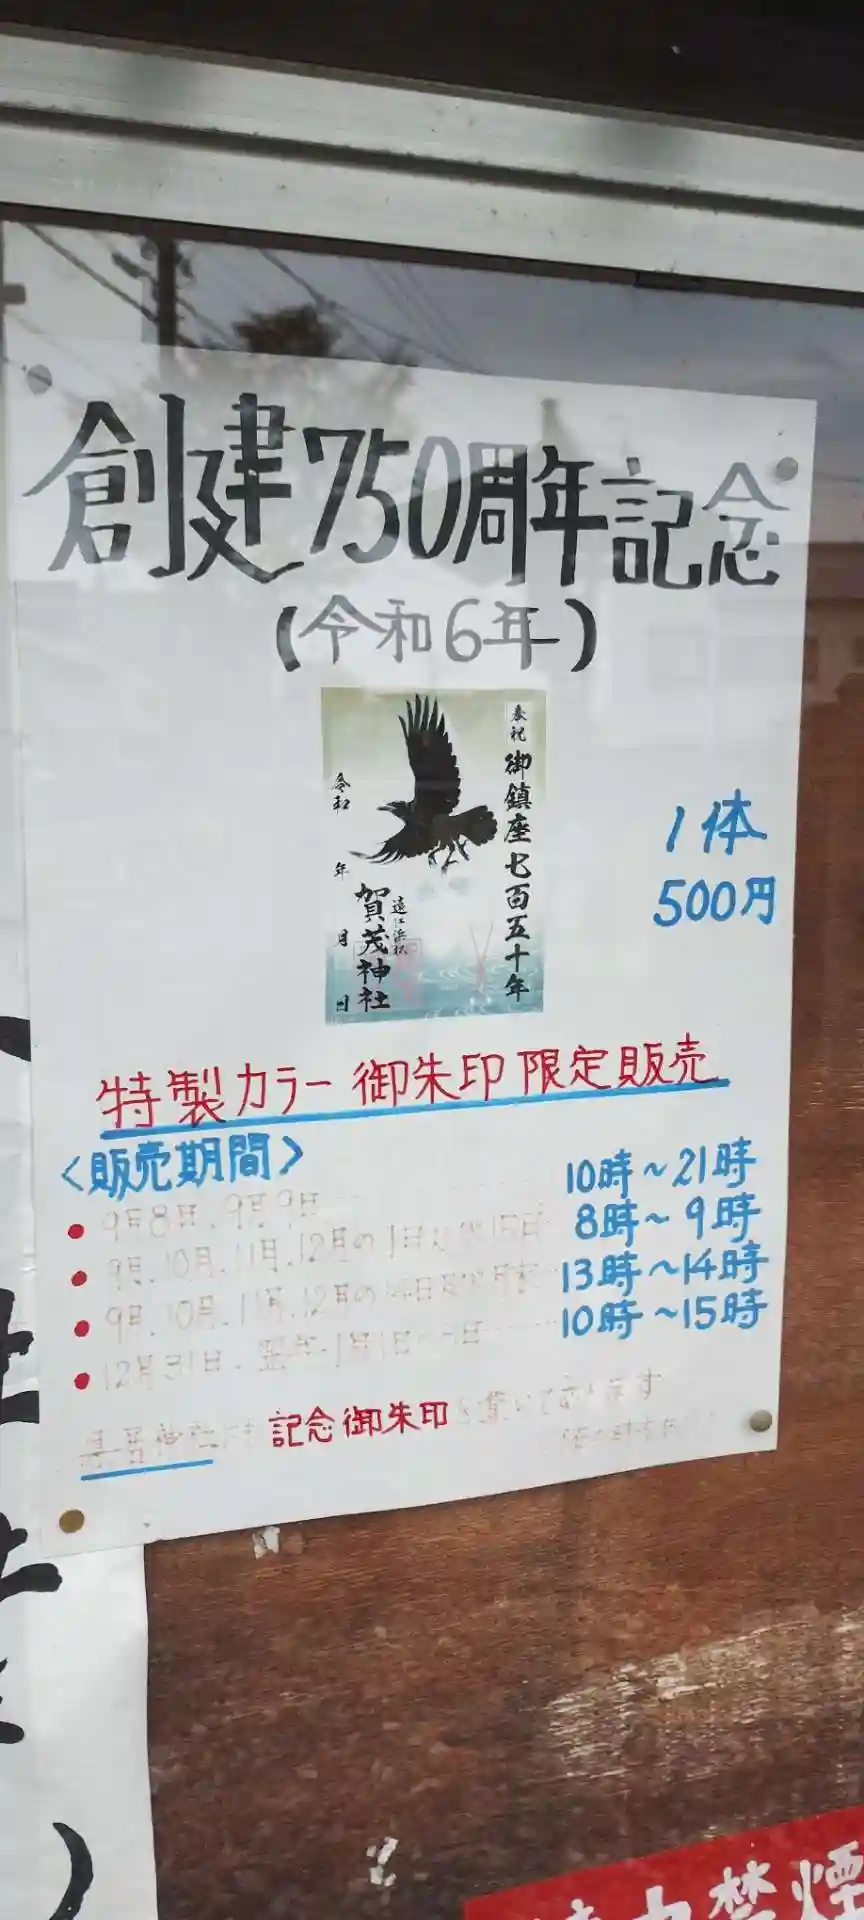 創建750周年記念
(令和6年)
奉祝
御鎮座七百五十年
遠江浜松
賀茂神社
令和 年 月 日
1体
500円
特製カラー御朱印限定販売
<販売期間>
・9月8日、9月9日 10時~21時
・9月、10月、11月、12月の1日 8時~9時
・9月、10月、11月、12月の 13時~14時
・12月31日、翌年1月1日 10時~15時
記念御朱印を置いております
禁煙